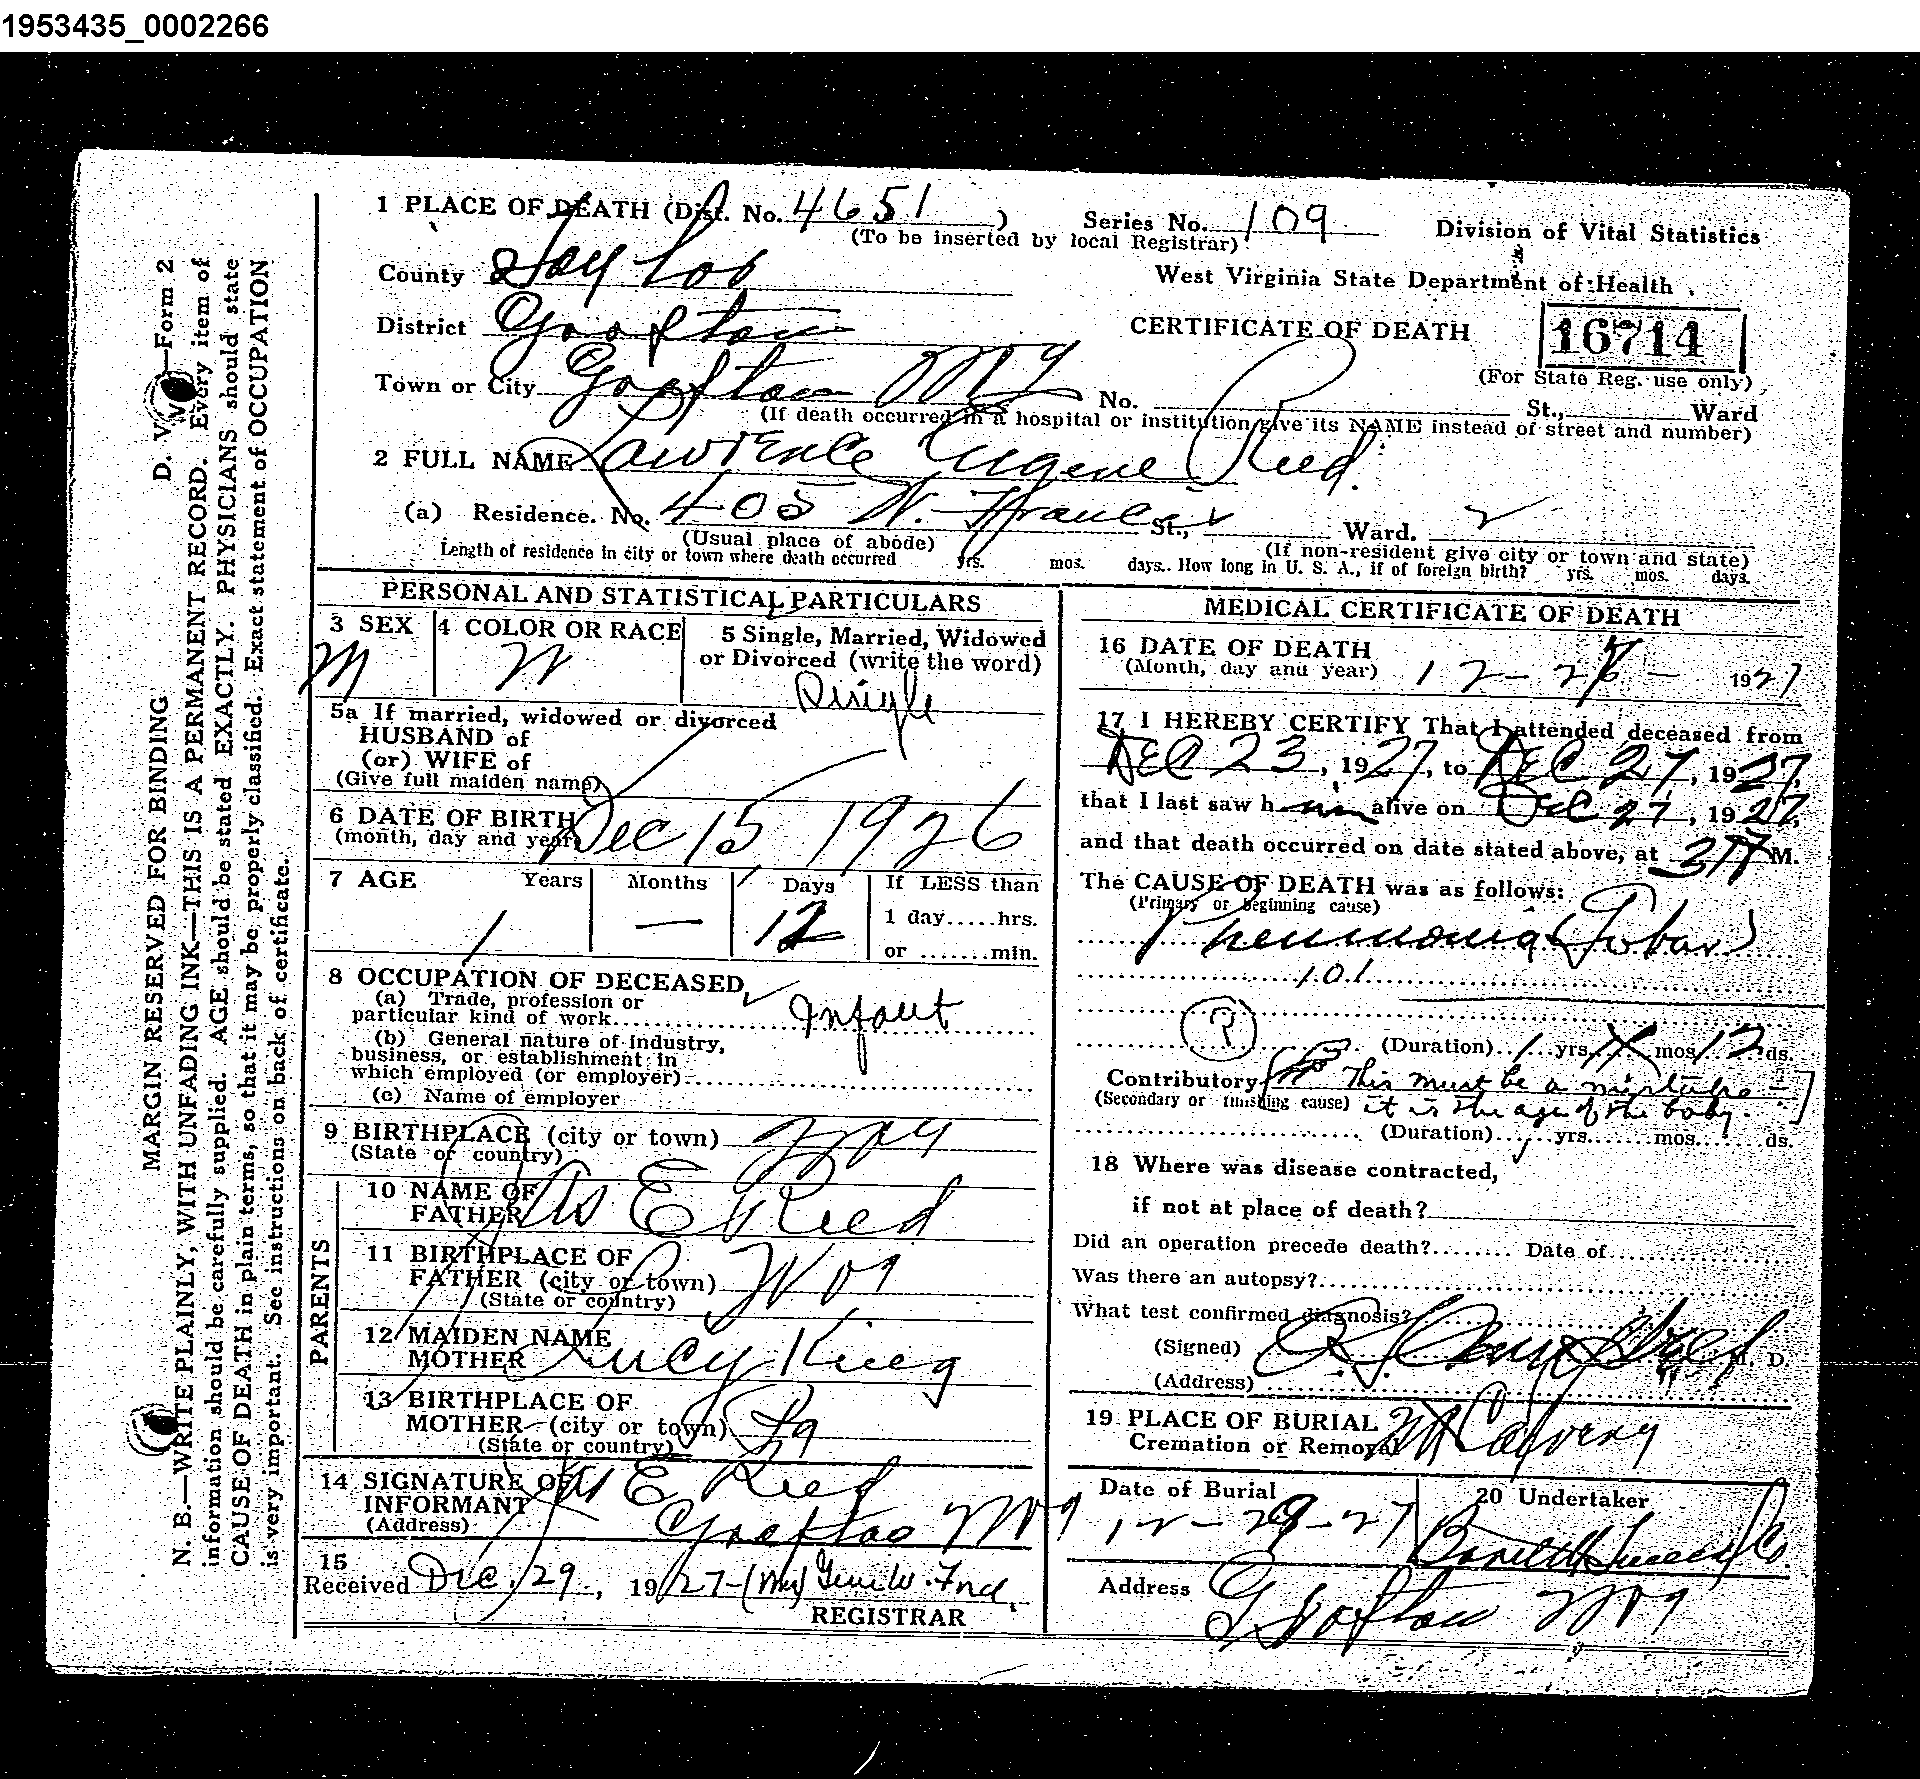 1953435_0002266
1 PLACE OF DEATH (Dist. No. 4651 ) Series No. 109 Division of Vital Statistics
(To be inserted by local Registrar)
County Taylor West Virginia State Department of Health
District Grafton CERTIFICATE OF DEATH 16714
(For State Reg. use only)
Town or City Grafton No. St., Ward
(If death occurred in a hospital or institution give its NAME instead of street and number)
2 FULL NAME Lawrence Eugene Reed.
(a) Residence. No. 405 N. St., Ward.
(Usual place of abode) (If non-resident give city or town and state)
Length of residence in city or town where death occurred yrs. mos. days. How long in U. S. A., if of foreign birth? yrs. mos. days.
PERSONAL AND STATISTICAL PARTICULARS
3 SEX 4 COLOR OR RACE 5 Single, Married, Widowed
or Divorced (write the word)
M W Single
5a If married, widowed or divorced
HUSBAND of
(or) WIFE of
(Give full maiden name)
6 DATE OF BIRTH
(month, day and year) Dec 15 1926
7 AGE Years Months Days If LESS than
1 — 12 1 day.....hrs.
or .......min.
8 OCCUPATION OF DECEASED
(a) Trade, profession or
particular kind of work Infant
(b) General nature of industry,
business, or establishment in
which employed (or employer)
(c) Name of employer
9 BIRTHPLACE (city or town)
(State or country)
PARENTS
10 NAME OF
FATHER E Reed
11 BIRTHPLACE OF
FATHER (city or town) W Va
(State or country)
12 MAIDEN NAME
MOTHER Lucy King
13 BIRTHPLACE OF
MOTHER (city or town) Pa
(State or country)
14 SIGNATURE OF
INFORMANT E Reed
(Address) Grafton W Va
15
Received Dec. 29, 1927
REGISTRAR
MEDICAL CERTIFICATE OF DEATH
16 DATE OF DEATH
(Month, day and year) 12 - 28 - 1927
17 I HEREBY CERTIFY That I attended deceased from
DEC 23, 1927, to DEC 27, 1927,
that I last saw him alive on DEC 27, 1927,
and that death occurred on date stated above, at M.
The CAUSE OF DEATH was as follows:
(Primary or beginning cause)
Pneumonia (Lobar)
101
(?)
(Duration) 1 yrs. mos. 12 ds.
Contributory This must be a mistake -
(Secondary or finishing cause) it is the age of the baby.
(Duration) yrs. mos. ds.
18 Where was disease contracted,
if not at place of death?
Did an operation precede death? Date of
Was there an autopsy?
What test confirmed diagnosis?
(Signed) M. D.
(Address)
19 PLACE OF BURIAL
Cremation or Removal Mt Calvery
Date of Burial 20 Undertaker
12-29-27
Address Grafton W Va
MARGIN RESERVED FOR BINDING D. V. —Form 2
N. B.—WRITE PLAINLY, WITH UNFADING INK—THIS IS A PERMANENT RECORD. Every item of
information should be carefully supplied. AGE should be stated EXACTLY. PHYSICIANS should state
CAUSE OF DEATH in plain terms, so that it may be properly classified. Exact statement of OCCUPATION
is very important. See instructions on back of certificate.